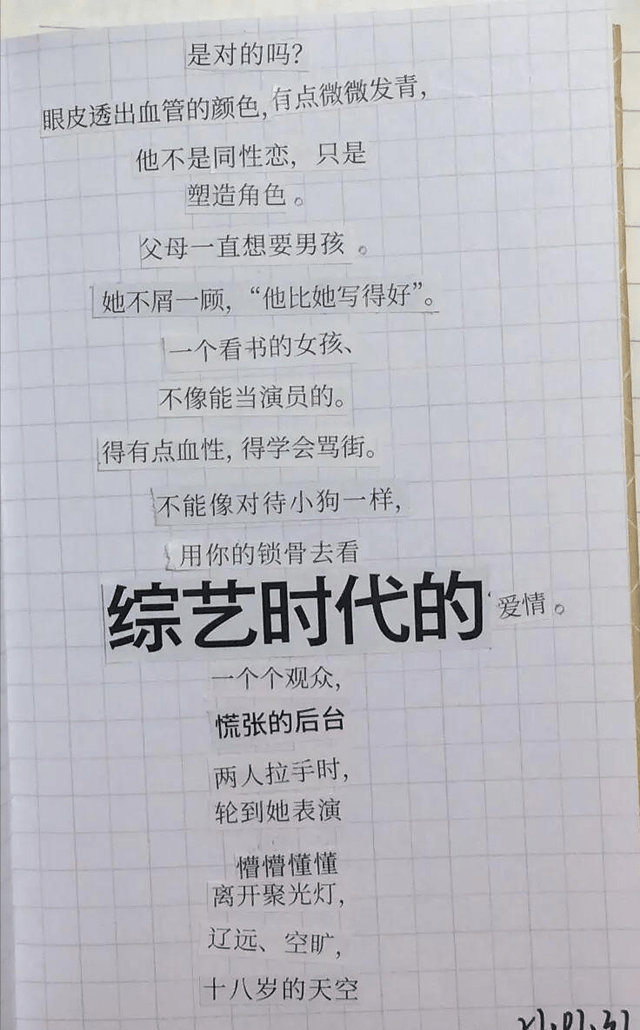 是对的吗?
眼皮透出血管的颜色,有点微微发青,
他不是同性恋，只是
塑造角色。
父母一直想要男孩。
她不屑一顾，“他比她写得好”。
一个看书的女孩、
不像能当演员的。
得有点血性，得学会骂街。
不能像对待小狗一样,
用你的锁骨去看
综艺时代的爱情。
一个个观众,
慌张的后台
两人拉手时,
轮到她表演
懵懵懂懂
离开聚光灯,
辽远、空旷,
十八岁的天空
21.01.31